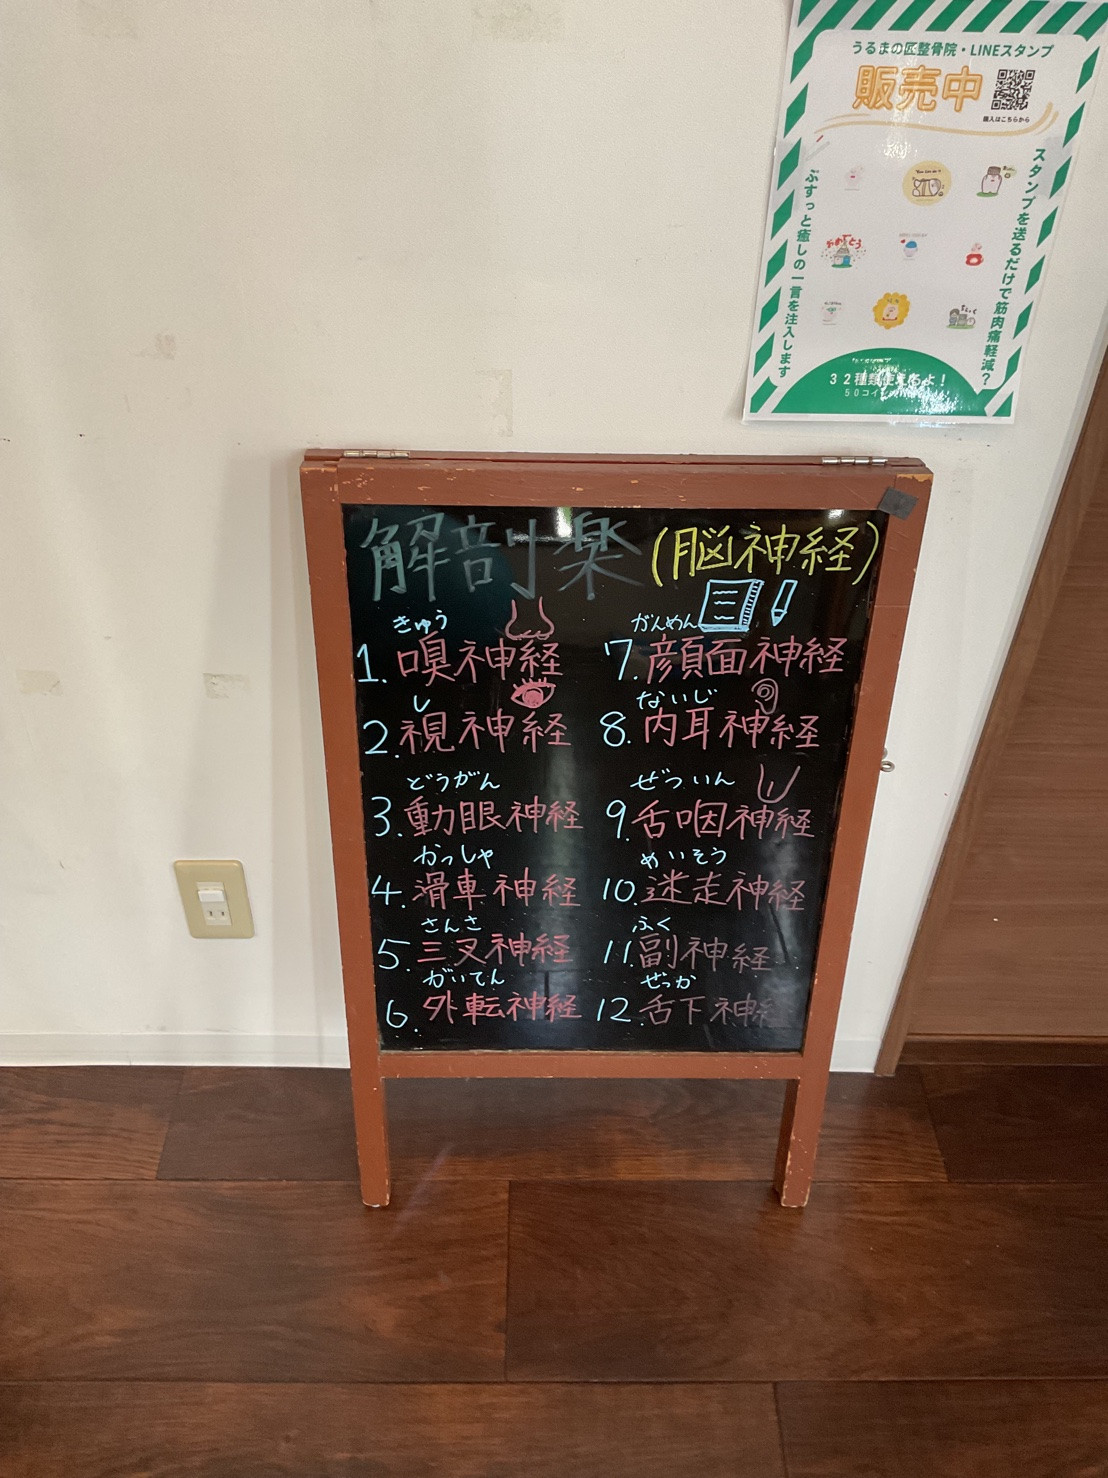 うるまの匠整骨院・LINEスタンプ
販売中
購入はこちらから
スタンプを送るだけで筋肉痛軽減?
ぷすっと癒しの一言を注入します
おめでとう
32種類使えるよ!
50コイン
解剖楽(脳神経)
きゅう
1.嗅神経
し
2.視神経
どうがん
3.動眼神経
かっしゃ
4.滑車神経
さんさ
5.三叉神経
がいてん
6.外転神経
がんめん
7.顔面神経
ないじ
8.内耳神経
ぜついん
9.舌咽神経
めいそう
10.迷走神経
ふく
11.副神経
ぜっか
12.舌下神経